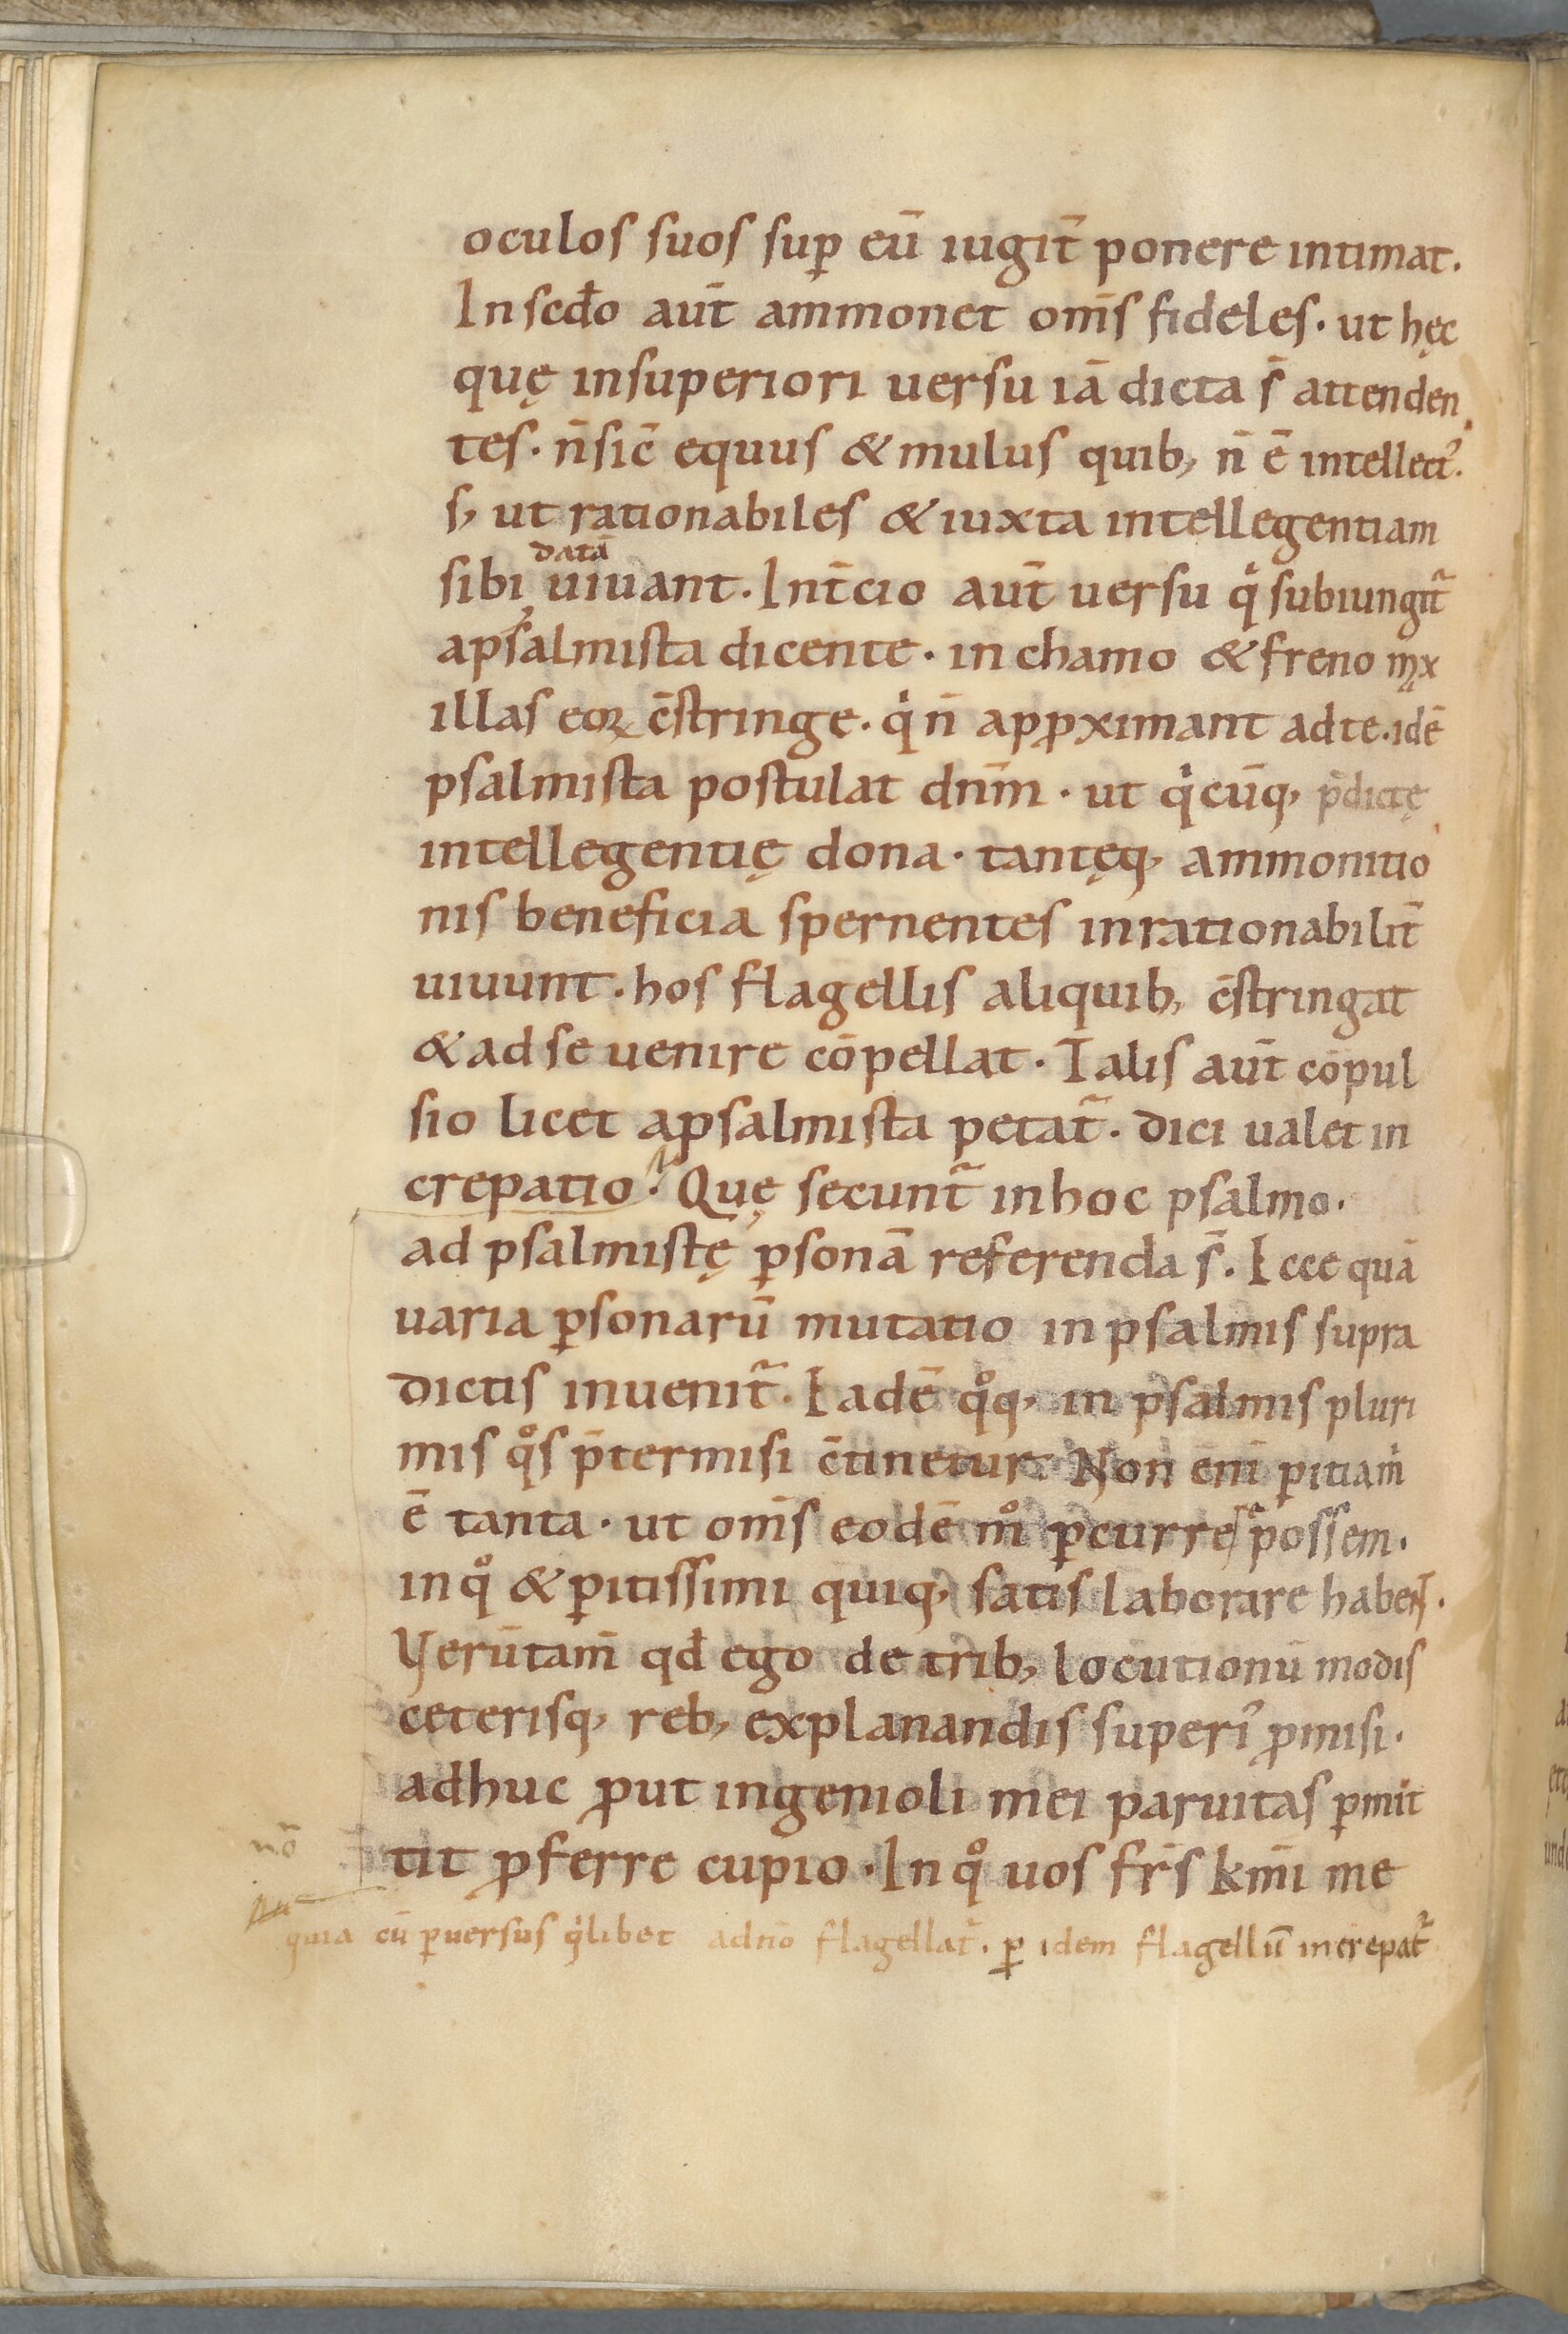 oculos suos sup̱ eū iugit̄ ponere intimat.
In scđo aut̄ ammonet om̄s fideles· ut hęc
quę insuperiori uersu iā dicta s̄ attenden
tes· n̄ sic̄ equus & mulus quib; n̄ ē intellectꝰ.
s; ut rationabiles & iuxta intellegentiam
datā
sibi, uiuant. Int̄cio aut̄ uersu qͥ subiungit᷑
apsalmista dicente· in chamo & freno mx
illas eoꝝ c̄stringe· qͥ n̄ apꝓximant ad te· idē
psalmista postulat dn̄m· ut qͥcūq; p̄dictę
intellegentię dona· tantęq; ammonitio
nis beneficia spernentes inrationabilit̄
uiuunt· hos flagellis aliquib; c̄stringat
& ad se uenire cōpellat· Talis aut̄ cōpul
sio licet apsalmista petat᷑· dici ualet in
crepatio· Quę secunt᷑ in hoc psalmo·
ad psalmistę ꝑsonā referenda s̄. Ecce quā
uaria ꝑsonarū mutatio in psalmis supra
dictis inuenit᷑. Eadē qͦq; in psalmis pluri
mis qͦs p̄termisi c̄tinetur. Non enī ꝑitia mͥ
ē tanta· ut om̄s eodē mͦ ꝑcurre possem·
in qͦ & ꝑitissimi quiq; satis laborare habent·
Uerūtam̄ qđ ego de trib; locutionū modis
ceterisq; reb; explanandis superiꝰ ꝓmisi·
adhuc ꝓut ingenioli mei paruitas ꝑmit
tit ꝓferre cupio· In qͦ uos fr̄s km̄i me
quia cū ꝑuersus qͥlibet adn̄o flagellat᷑· ꝑ idem flagellū increpat᷑